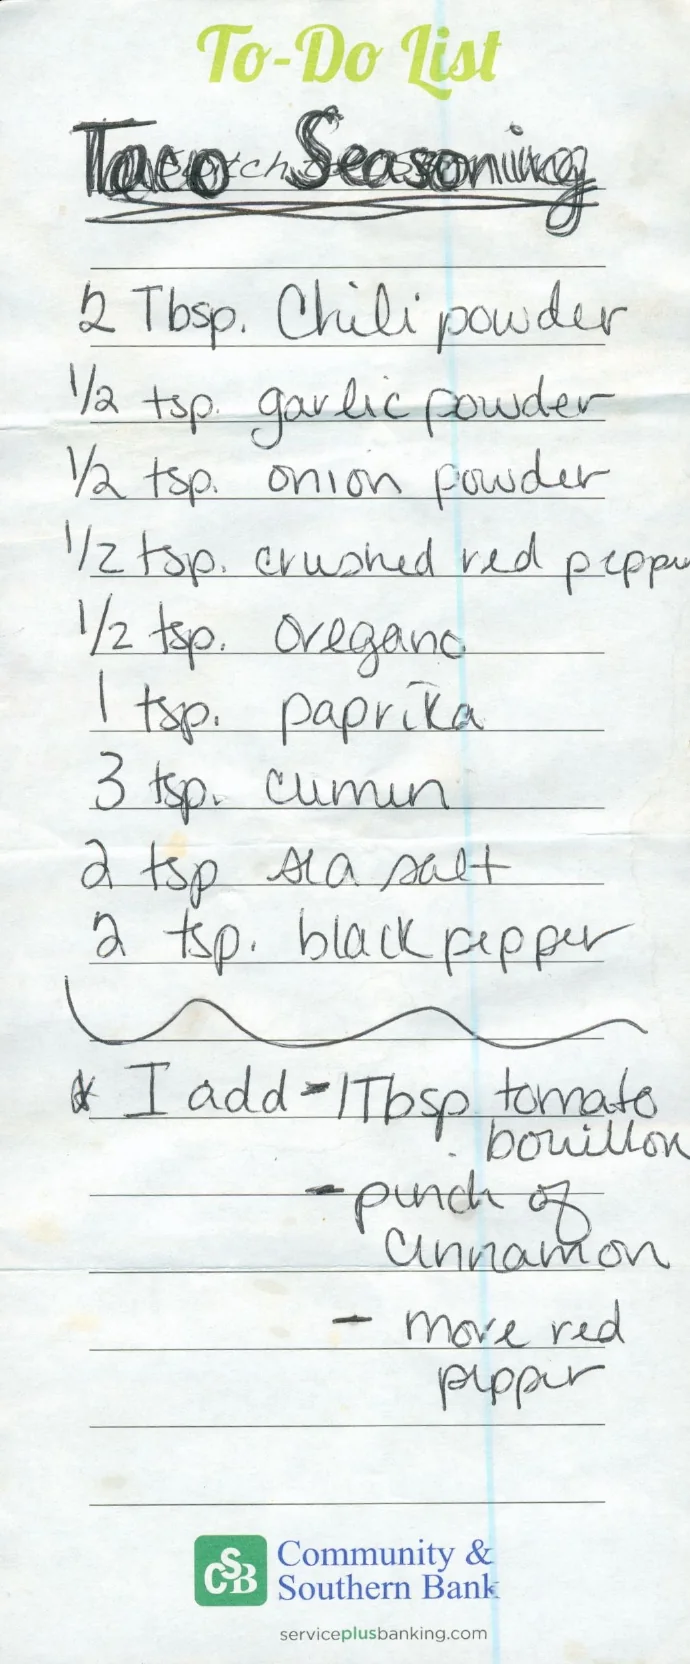 To-Do List
Taco Seasoning
2 Tbsp. Chili powder
1/2 tsp. garlic powder
1/2 tsp. onion powder
1/2 tsp. crushed red pepper
1/2 tsp. oregano
1 tsp. paprika
3 tsp. cumin
2 tsp sea salt
2 tsp. black pepper
* I add - 1 Tbsp. tomato
bouillon
- pinch of
cinnamon
- more red
pepper
CSB
Community &
Southern Bank
serviceplusbanking.com